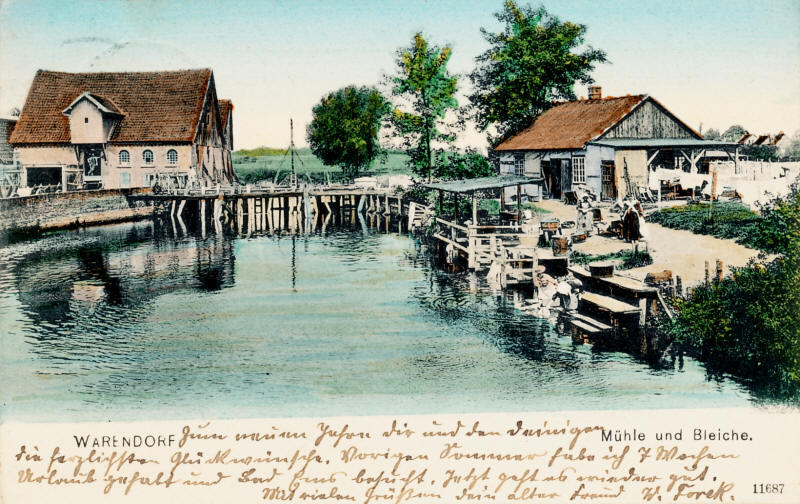 WARENDORF Zum neuen Jahre dir und den Deinigen Mühle und Bleiche.
die herzlichsten Glückwünsche. Vorigen Sommer habe ich 7 Wochen
Urlaub gehabt und Bad Ems besucht. Jetzt geht es wieder gut.
Mit vielen Grüßen dein alter Freund
11687